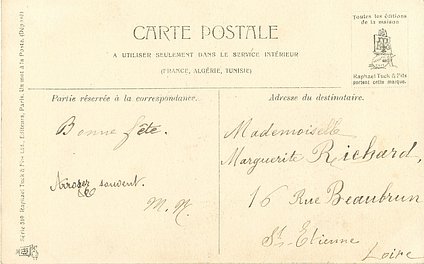 CARTE POSTALE
A UTILISER SEULEMENT DANS LE SERVICE INTÉRIEUR
(FRANCE, ALGÉRIE, TUNISIE)
Toutes les éditions
de la maison
Raphael Tuck & Fils
portent cette marque.
Partie réservée à la correspondance.
Bonne fête.
Arroser souvent.
M. N.
Adresse du destinataire.
Mademoiselle
Marguerite Richard,
16 Rue Beaubrun
St-Etienne
Loire
Série 510 Raphael Tuck & Fils Ltd., Editeurs, Paris. Un mot à la Poste. (Déposé)